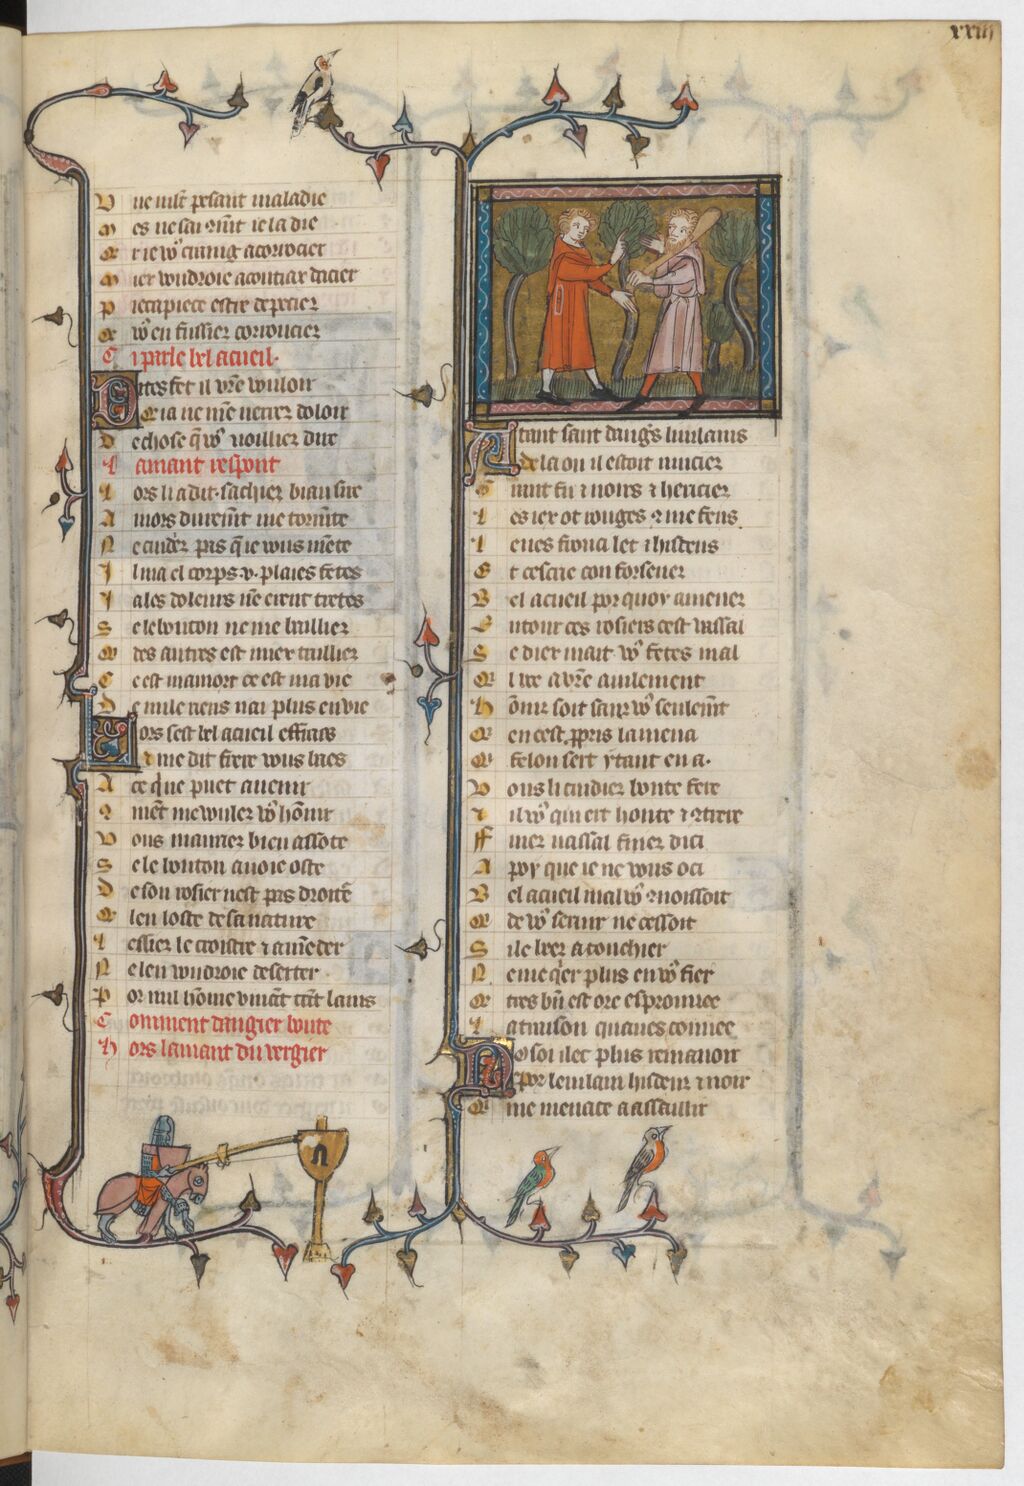 xxiij
U ne mlt pesant maladie
M es ne sai coment ie la die
Q r ie vos criem a corocier
M iex voudroie a coutiax dacier
P iece a piece estre depecier
Q vos en fussiez corroucier
C i parle bel acueil
D ites fet il vostre vouloir
Q ia ne me verrez doloir
D e chose que vos voilliez dire
L amant respont
L ors li a dit sachiez biau sire
A mors durement me tormente
N e cuidez pas que ie vous mente
I l ma el corps .v. plaies fetes
J a les doleurs nen erent tretes
S e le bouton ne me bailliez
Q des autres est miex tailliez
C e est ma mort ce est ma vie
D e nule riens nai plus envie
L ors sest bel acueil effraes
E t me dit frere vous baes
A ce que puet avenir
Coment me voulez vos honnir
V ous mauriez bien assote
S e le bouton avoie oste
D e son rosier nest pas droiture
Q len loste de sa nature
L essiez le croistre et amender
N e len voudroie deserter
P or nul homme vivant tant lains
C omment dangier boute
H ors lamant du vergier
A tant saut dangers li vilains
De la ou il estoit muciez
G rant fu et noirs et hericiez
L es iex ot rouges comme feus
L e nes froncie let et hisdeus
E t cescrie con forsenez
B el acueil por quoy amenez
E ntour ces rosiers cest vassal
S e diex mait vos fetes mal
Q l bee a vostre avilement
H onniz soit sanz vos seulement
Q en cest porpris lamena
Q felon sert ytant en a
V ous li cuidiez bonte fere
E t il vos quiert honte et contrere
ff uiez vassal fuiez dici
A poy que ie ne vous oci
B el acueil mal vos connoissoit
Q de vos servir ne cessoit
S i le beez a conchier
N e me quier plus en vos fier
Q tres bien est ore esprouvee
L a traison quaves couvee
N osoi ilec plus remanoir
Por le vilain hisdeur et noir
Q me menace a assaillir